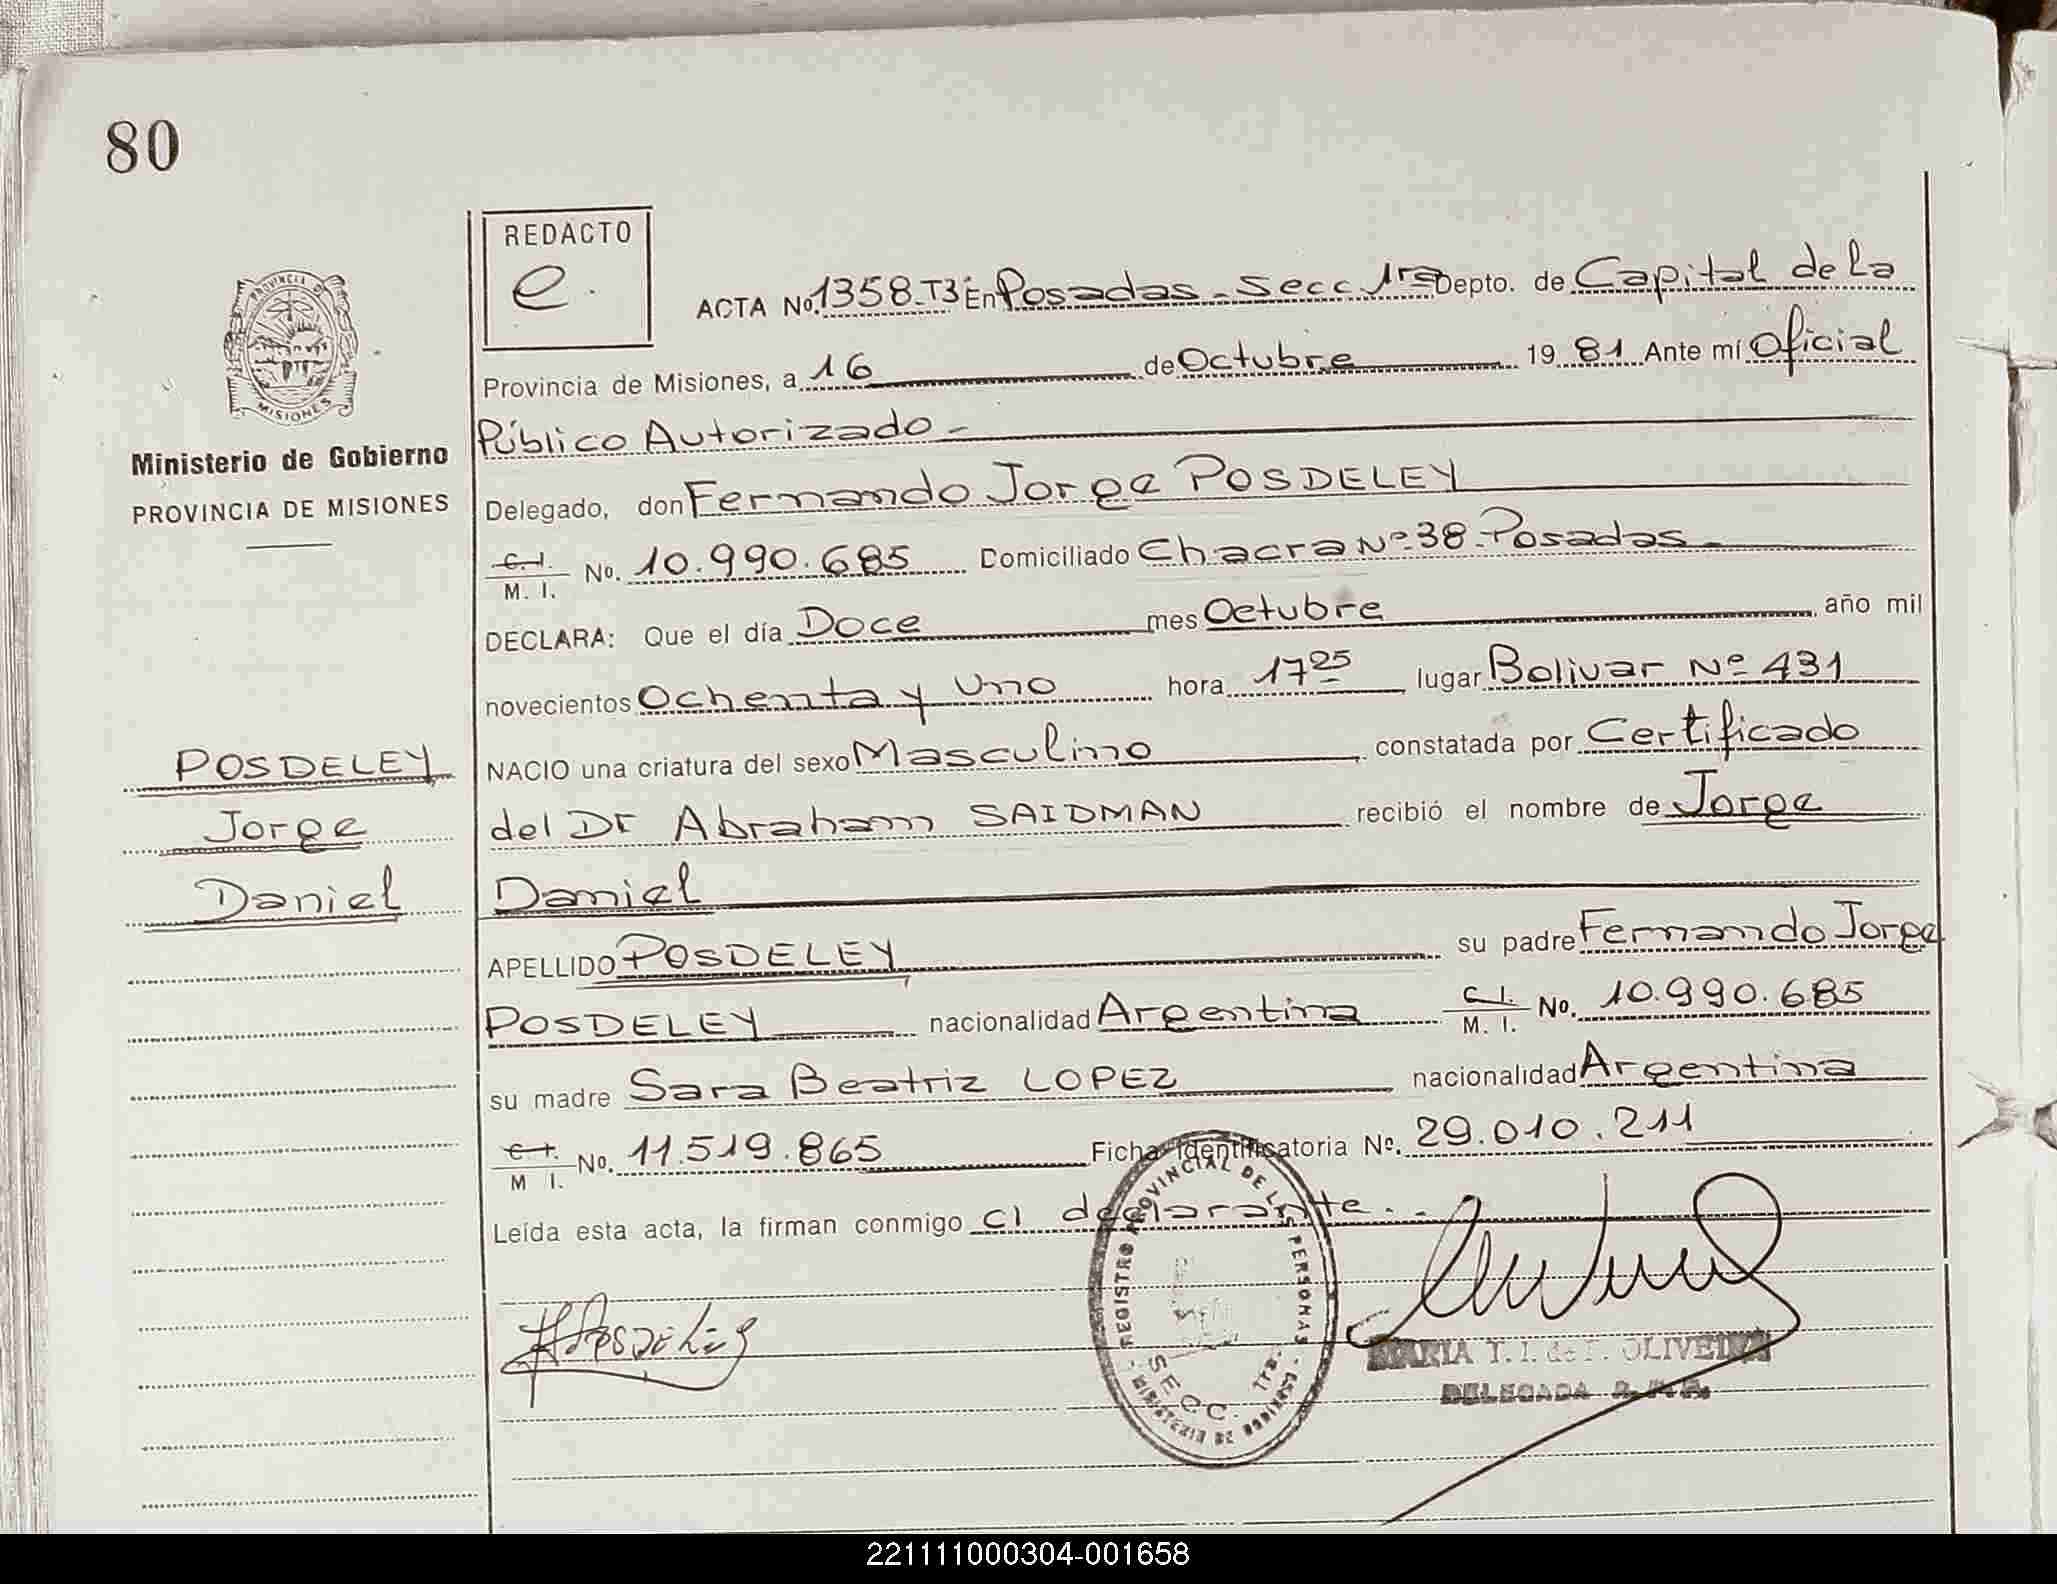 80
REDACTO
e.
ACTA No. 1358-T3º En Posadas - Secc 1ra Depto. de Capital de La
Provincia de Misiones, a 16 de Octubre 19 81 Ante mí Oficial
Público Autorizado -
Delegado, don Fernando Jorge POSDELEY
C. I.
M. I. No. 10.990.685 Domiciliado Chacra Nº 38 - Posadas -
DECLARA: Que el día Doce mes Octubre, año mil
novecientos Ochenta y Uno hora 17 25 lugar Bolivar Nº 431
NACIO una criatura del sexo Masculino, constatada por Certificado
del Dr Abraham SAIDMAN recibió el nombre de Jorge
Daniel
APELLIDO POSDELEY su padre Fernando Jorge
POSDELEY nacionalidad Argentina C. I.
M. I. No. 10.990.685
su madre Sara Beatriz LOPEZ nacionalidad Argentina
C. I.
M I. No. 11.519.865 Ficha Identificatoria Nº. 29.010.211
Leída esta acta, la firman conmigo el declarante. -
PROVINCIA DE
MISIONES
Ministerio de Gobierno
PROVINCIA DE MISIONES
POSDELEY
Jorge
Daniel
REGISTRO PROVINCIAL DE LAS PERSONAS -
SECC. 1ra.
MARIA T. I. de F. OLIVEIRA
DELEGADA
221111000304-001658